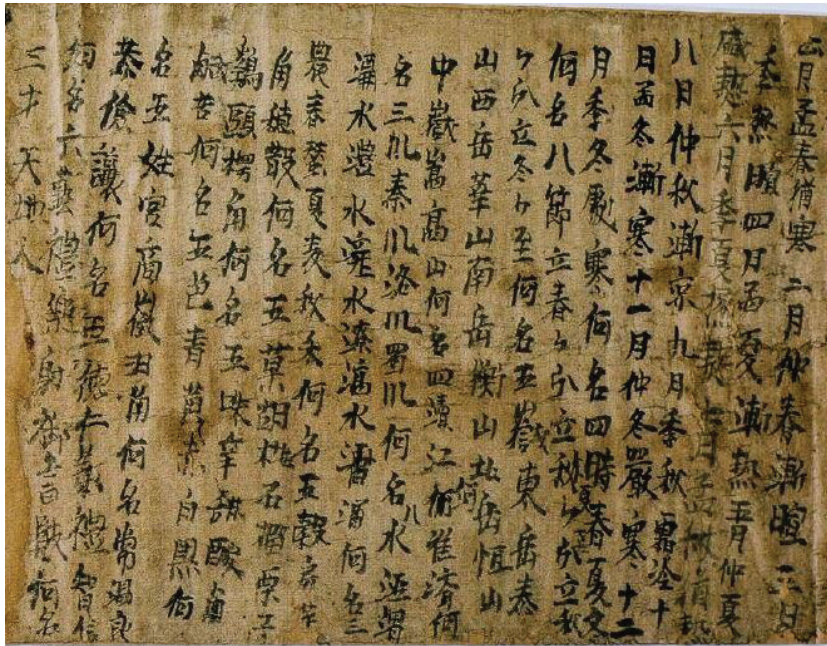 正月孟春猶寒 二月仲春漸暄 三月
季熱暄四月孟夏漸熱五月仲夏
盛熱六月季夏極熱七月孟秋猶熱
八日仲秋漸京九月季秋霜冷十
日孟冬漸寒十一月仲冬嚴寒十二
月季冬嚴寒何名四時春夏冬
何名八節立春々分立秋々分立秋
々分立冬々至何名五嶽東岳泰
山西岳華山南岳衡山北岳恒山
中嶽嵩高山何名四瀆江河淮濟何
名三川秦川洛川蜀川何名八水涇渭
灞水澧水 水 水 何名三
農春蠶夏麦秋禾何名五穀
角 穀何名五菓胡桃石榴栗子
何名五味辛甜酸
鹹苦何名五色青黃赤白黒何
名五姓宮商 何名 温良
恭儉讓何名五德仁義禮智信
何名六藝禮樂射御書數何名
三才天地人